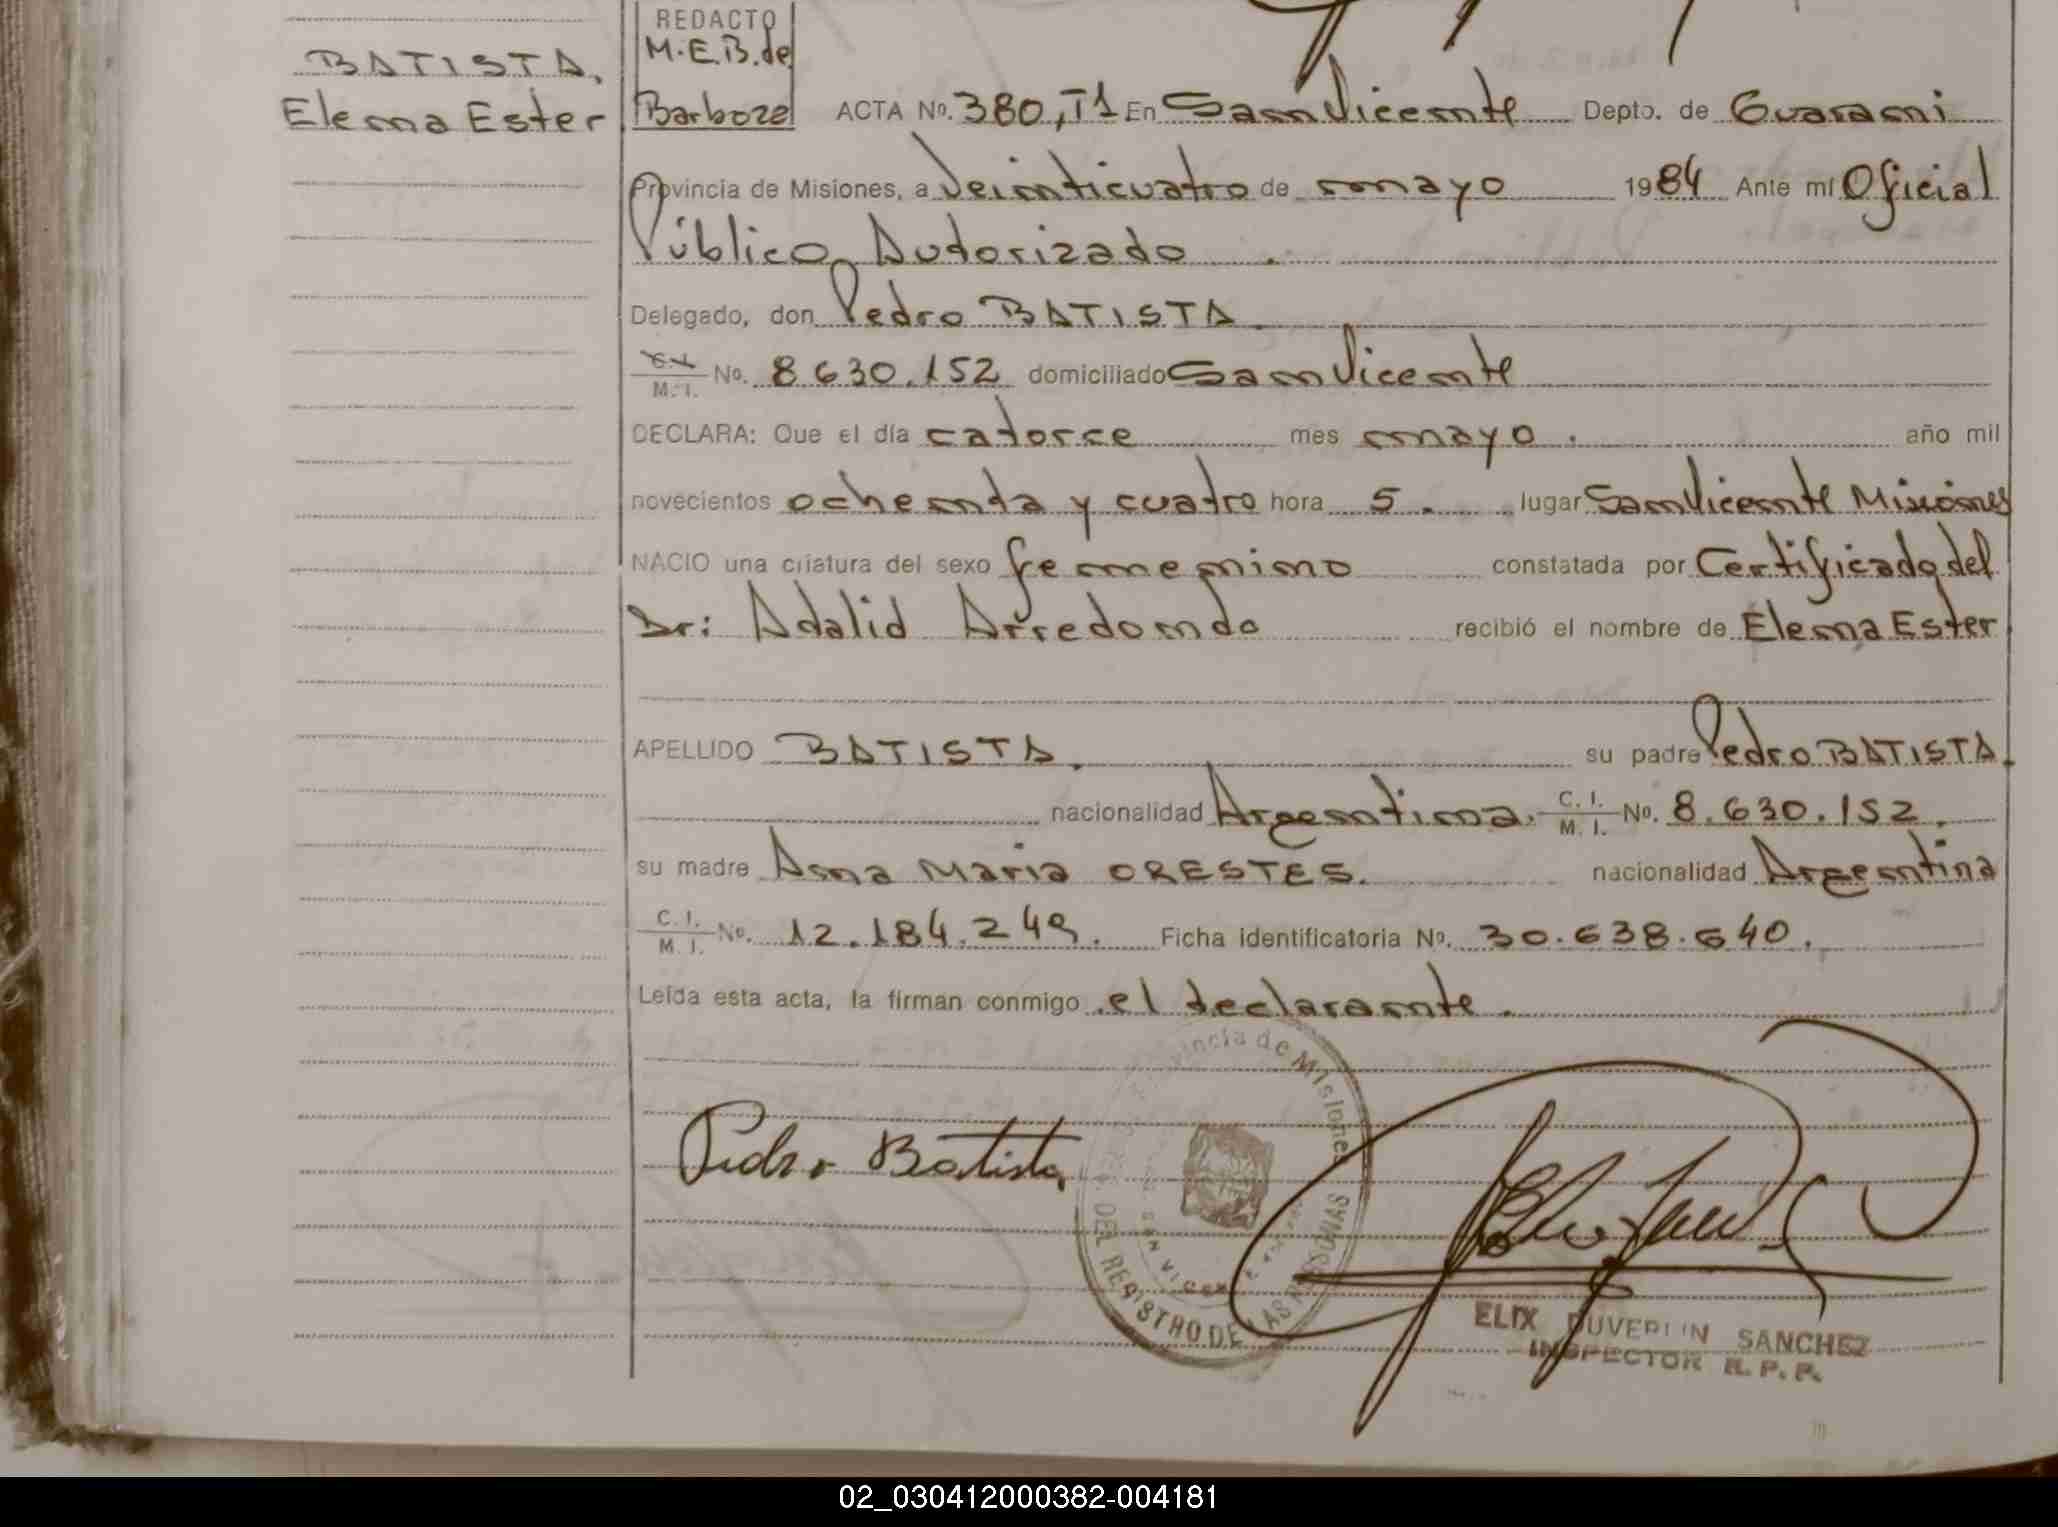 BATISTA,
Elena Ester
REDACTO
M.E.B. de
Barboze
ACTA Nº. 380, T1 En San Vicente Depto. de Guarani
Provincia de Misiones, a veinticuatro de mayo 1984 Ante mí Oficial
Público Autorizado.
Delegado, don Pedro BATISTA
C.I. M.I. No. 8630.152 domiciliado San Vicente
DECLARA: Que el día catorce mes mayo. año mil
novecientos ochenta y cuatro hora 5. lugar San Vicente Misiones
NACIO una criatura del sexo femenino constatada por Certificado del
Dr: Adalid Arredondo recibió el nombre de Elena Ester
APELLIDO BATISTA. su padre Pedro BATISTA.
nacionalidad Argentina. C. I. M. I. No. 8.630.152.
su madre Ana Maria ORESTES. nacionalidad Argentina
C. I. M. I. No. 12.184.249. Ficha identificatoria No. 30.638.640.
Leída esta acta, la firman conmigo el declarante.
Provincia de Misiones
DEL REGISTRO DE LAS PERSONAS
SAN VICENTE
Pedro Batista
ELIX DUVERLIN SANCHEZ
INSPECTOR R. P. P.
02_030412000382-004181